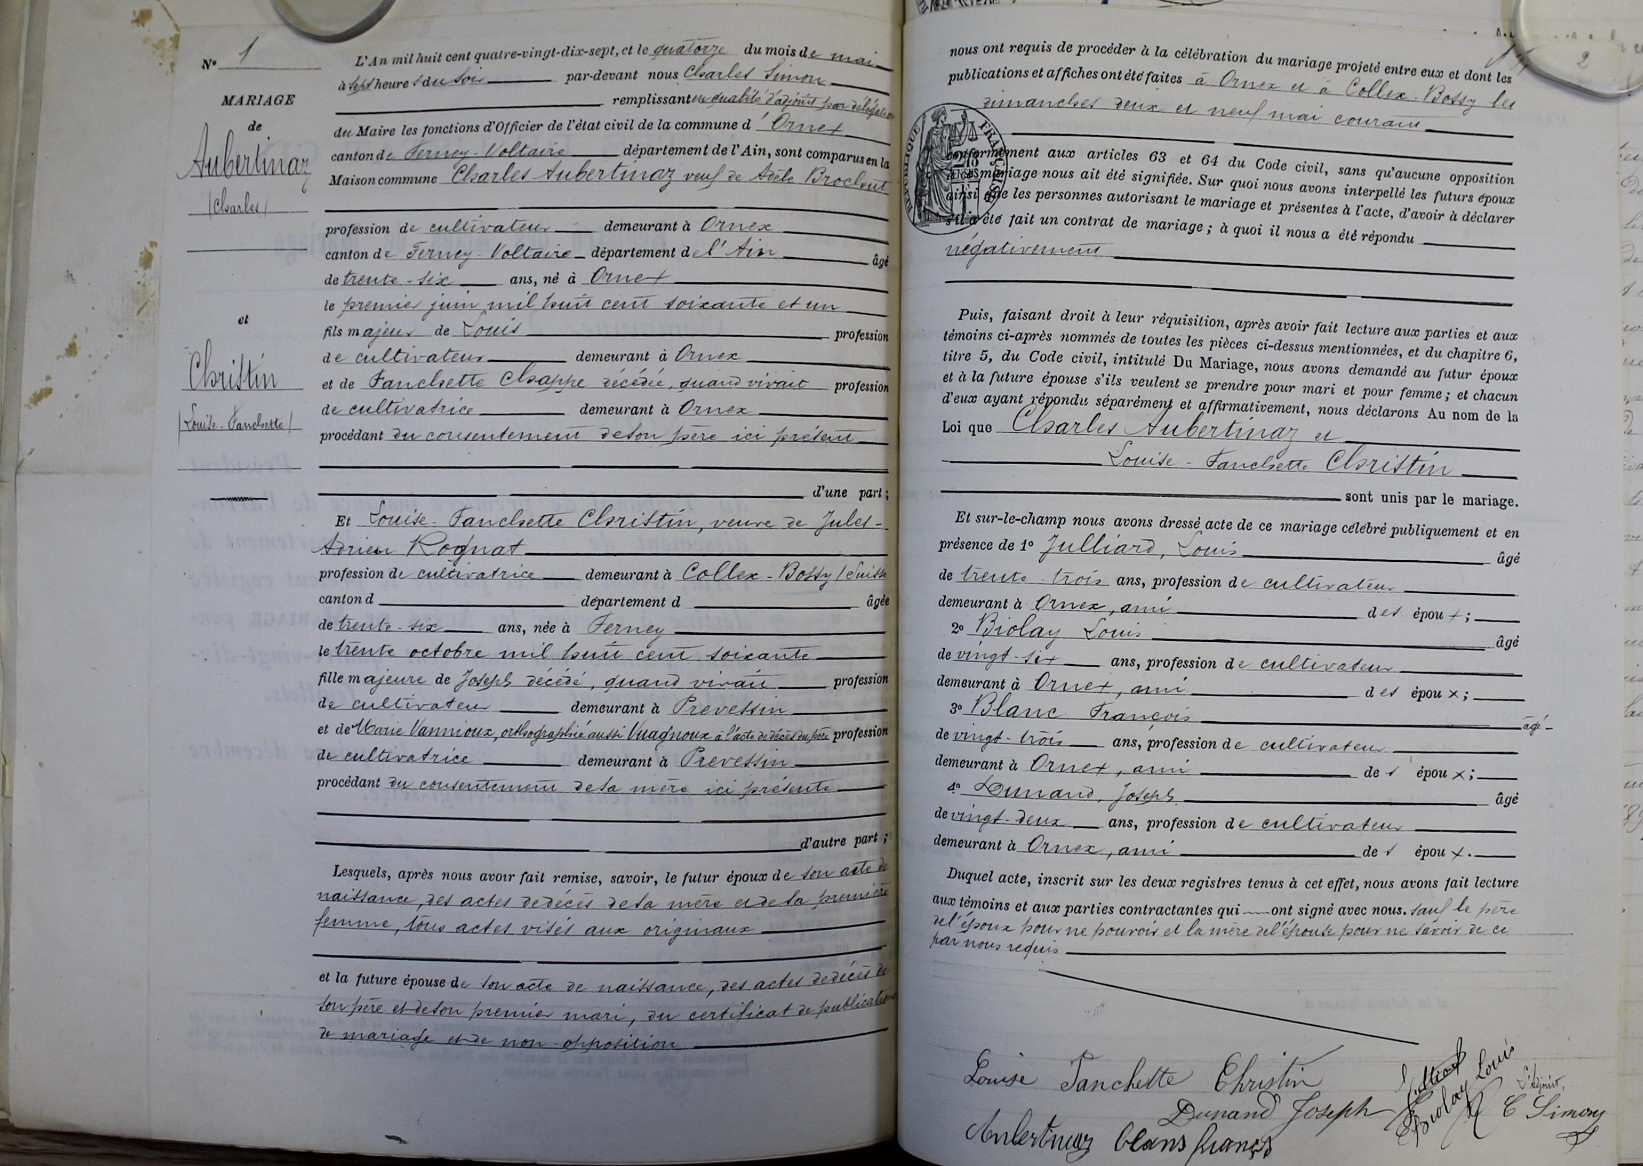 Nº 1
MARIAGE
de
Aubertinaz
(Charles)
et
Christin
(Louise-Fanchette)
L'An mil huit cent quatre-vingt-dix-sept, et le quatorze du mois de mai
à sept heures du soir par-devant nous Charles Simon
remplissant en qualité d'adjoint par délégation
du Maire les fonctions d'Officier de l'état civil de la commune d'Ornex
canton de Ferney-Voltaire département de l'Ain, sont comparus en la
Maison commune Charles Aubertinaz veuf de Adèle Brochut
profession de cultivateur demeurant à Ornex
canton de Ferney-Voltaire département de l'Ain âgé
de trente-six ans, né à Ornex
le premier juin mil huit cent soixante et un
fils majeur de Louis profession
de cultivateur demeurant à Ornex
et de Fanchette Chappe décédée, quand vivait profession
de cultivatrice demeurant à Ornex
procédant du consentement de son père ici présent
d'une part;
Et Louise-Fanchette Christin, veuve de Jules-
Adrien Rognat
profession de cultivatrice demeurant à Collex-Bossy (Suisse
canton d département d âgée
de trente-six ans, née à Ferney
le trente octobre mil huit cent soixante
fille majeure de Joseph décédé, quand vivait profession
de cultivateur demeurant à Prevessin
et de Marie Vannioux, orthographié aussi Vuagnoux à l'acte de décès du père profession
de cultivatrice demeurant à Prevessin
procédant du consentement de sa mère ici présente
d'autre part;
Lesquels, après nous avoir fait remise, savoir, le futur époux de son acte de
naissance, des actes de décès de sa mère et de sa première
femme, tous actes visés aux originaux
et la future épouse de son acte de naissance, des actes de décès de
son père et de son premier mari, du certificat de publication
de mariage et de non-opposition
2
nous ont requis de procéder à la célébration du mariage projeté entre eux et dont les
publications et affiches ont été faites à Ornex et à Collex-Bossy les
dimanches deux et neuf mai courant
RÉPUBLIQUE FRANÇAISE
conformément aux articles 63 et 64 du Code civil, sans qu'aucune opposition
à ce mariage nous ait été signifiée. Sur quoi nous avons interpellé les futurs époux
ainsi que les personnes autorisant le mariage et présentes à l'acte, d'avoir à déclarer
s'il a été fait un contrat de mariage; à quoi il nous a été répondu
négativement
Puis, faisant droit à leur réquisition, après avoir fait lecture aux parties et aux
témoins ci-après nommés de toutes les pièces ci-dessus mentionnées, et du chapitre 6,
titre 5, du Code civil, intitulé Du Mariage, nous avons demandé au futur époux
et à la future épouse s'ils veulent se prendre pour mari et pour femme; et chacun
d'eux ayant répondu séparément et affirmativement, nous déclarons Au nom de la
Loi que Charles Aubertinaz et
Louise-Fanchette Christin
sont unis par le mariage.
Et sur-le-champ nous avons dressé acte de ce mariage célébré publiquement et en
présence de 1º Julliard, Louis âgé
de trente-trois ans, profession de cultivateur
demeurant à Ornex, ami des époux;
2º Biolay Louis âgé
de vingt-six ans, profession de cultivateur
demeurant à Ornex, ami des époux;
3º Blanc François âgé
de vingt-trois ans, profession de cultivateur
demeurant à Ornex, ami des époux;
4º Dunand, Joseph âgé
de vingt-deux ans, profession de cultivateur
demeurant à Ornex, ami des époux.
Duquel acte, inscrit sur les deux registres tenus à cet effet, nous avons fait lecture
aux témoins et aux parties contractantes qui ont signé avec nous. sauf le père
de l'époux pour ne pouvoir et la mère de l'épouse pour ne savoir de ce
par nous requis
Louise Fanchette Christin
Julliard
Biolay Louis
L'adjoint,
Dunand Joseph
C Simon
Aubertinaz blans françs